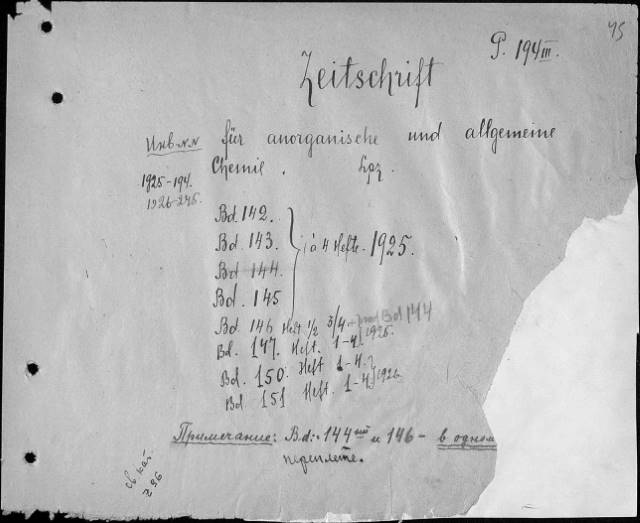 45
P. 194 III.
Zeitschrift
Инв. N.N für anorganische und allgemeine
Chemie. Lpz.
1925-194.
1926-245.
Bd. 142.
Bd. 143. } à 4 Hefte. 1925.
Bd 144.
Bd. 145
Bd. 146 Heft 1/2 3/4 Bd 144
Bd. 147. Heft. 1-4. 1925.
Bd. 150. Heft 1-4.
Bd 151 Heft. 1-4. } 1926
Примечание: Bd.: 144ый и 146 - в одном
переплете.
св. кат.
296